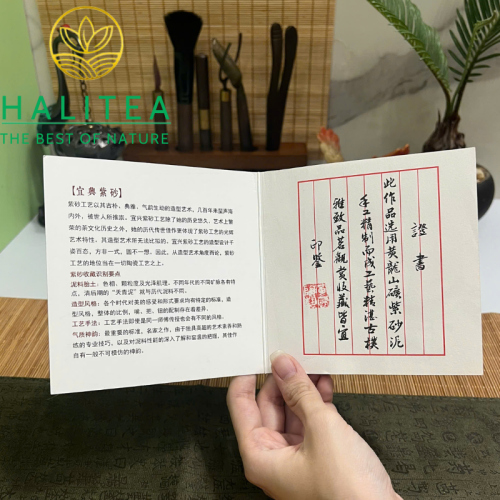 HALITEA
THE BEST OF NATURE
【宜興紫砂】
紫砂工艺以其古朴、典雅、气韵生动的造型艺术,几百年来蜚声海
内外,被世人所推崇。宜兴紫砂工艺除了她的历史悠久、艺术上繁
荣的茶文化历史之外,她的历代传世佳作更体现了紫砂工艺的光辉
艺术特性、其造型艺术所无法比拟的。宜兴紫砂工艺的造型设计千
姿百态,方非一式,圆不一想。因此,从造型艺术角度而论,紫砂
工艺的地位当在一切陶瓷工艺之上。
紫砂收藏识别要点
泥料胎土:色相、颗粒度及光泽肌理,不同年代的不同矿脉各有特
点,清后期的“天青泥”就与历代泥料不同。
造型风格:各个时代对美的感受和形式要素均有特定的标准,造
型风格,整体的比例、嘴、把、钮的配制存在着差异。
工艺手法:工艺手法即使是同一师傅传授也会有不同的风格。
气质神韵:最重要的标准,名家之作,由于独具高超的艺术素养和熟
练的专业技巧,以及对泥料性能的深入了解和窑温的把握,其佳作
自有一般不可模仿的神韵。
證書
此作品选用黄龙山礦紫砂泥
手工精制而成工艺精湛古樸
雅致品茗觀賞收藏皆宜
印鑒